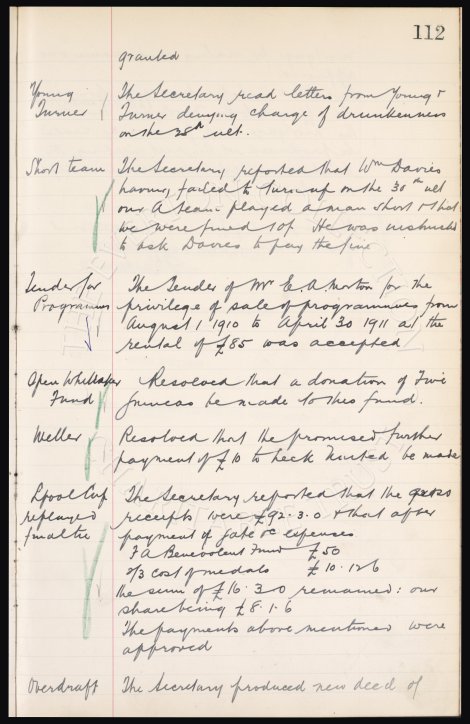 112
granted
Young &
Turner
The Secretary read letters from Young &
Turner denying charge of drunkenness
on the 28th ult.
Short team
The Secretary reported that Wm Davies
having failed to turn up on the 30th ult
our A team played a man short & that
we were fined 10/- He was instructed
to ask Davies to pay the fine
Tender for
Programmes
The Tender of Mr E. A. Morton for the
privilege of sale of programmes from
August 1 1910 to April 30 1911 at the
rental of £85 was accepted
Whittaker
Fund
Resolved that a donation of Five
guineas be made to this fund.
Weller
Resolved that the promised further
payment of £10 to be made
Lpool Cup
replayed
final tie
The Secretary reported that the gross
receipts were £92.3.0 & that after
payment of gate &c expenses
F A Benevolent Fund £50
2/3 cost of medals £10.12.6
the sum of £16.3.0 remained: our
share being £8.1.6
The payments above mentioned were
approved
Overdraft
The Secretary produced new deed of